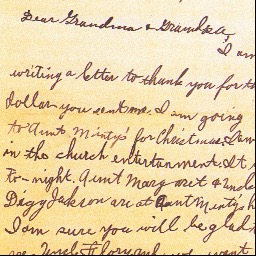 Dear Grandma & Grandpa,
I am
writing a letter to thank you for th
dollar you sent me. I am going
to Aunt Minty's for Christmas. I am
in the church entertainment. It
to-night. Aunt Margaret & Uncle
Diggy Jackson are at Aunt Minty's h
I am sure you will be glad
we want